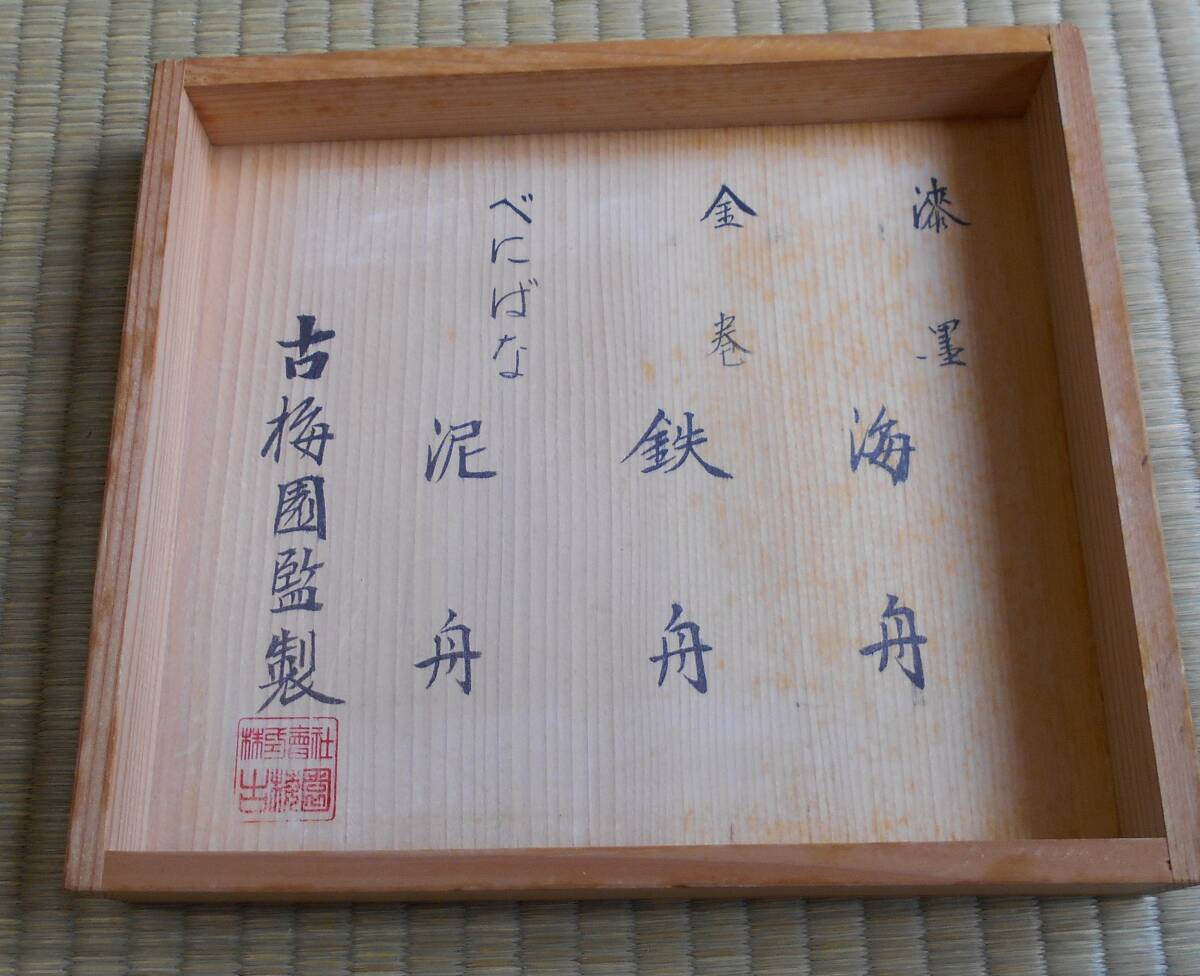 漆墨
海舟
金巻
鉄舟
べにばな
泥舟
古梅園監製
株式會社
古梅園